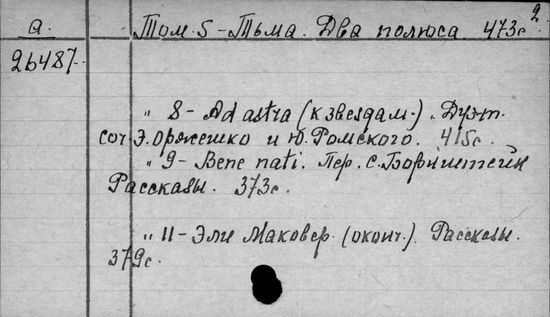 2
а. Том. 5 - Тьма. Два полюса. 473с
26487
" 8 - Ad astra (к звездам.) Дуэт.
соч. Э. Оржешко и Ю. Ромского. 415с.
" 9 - Bene nati. Пер. С. Борнштейн
Рассказы. 373с.
" 11 - Эли Маковер. (оконч.). Рассказы.
379с.